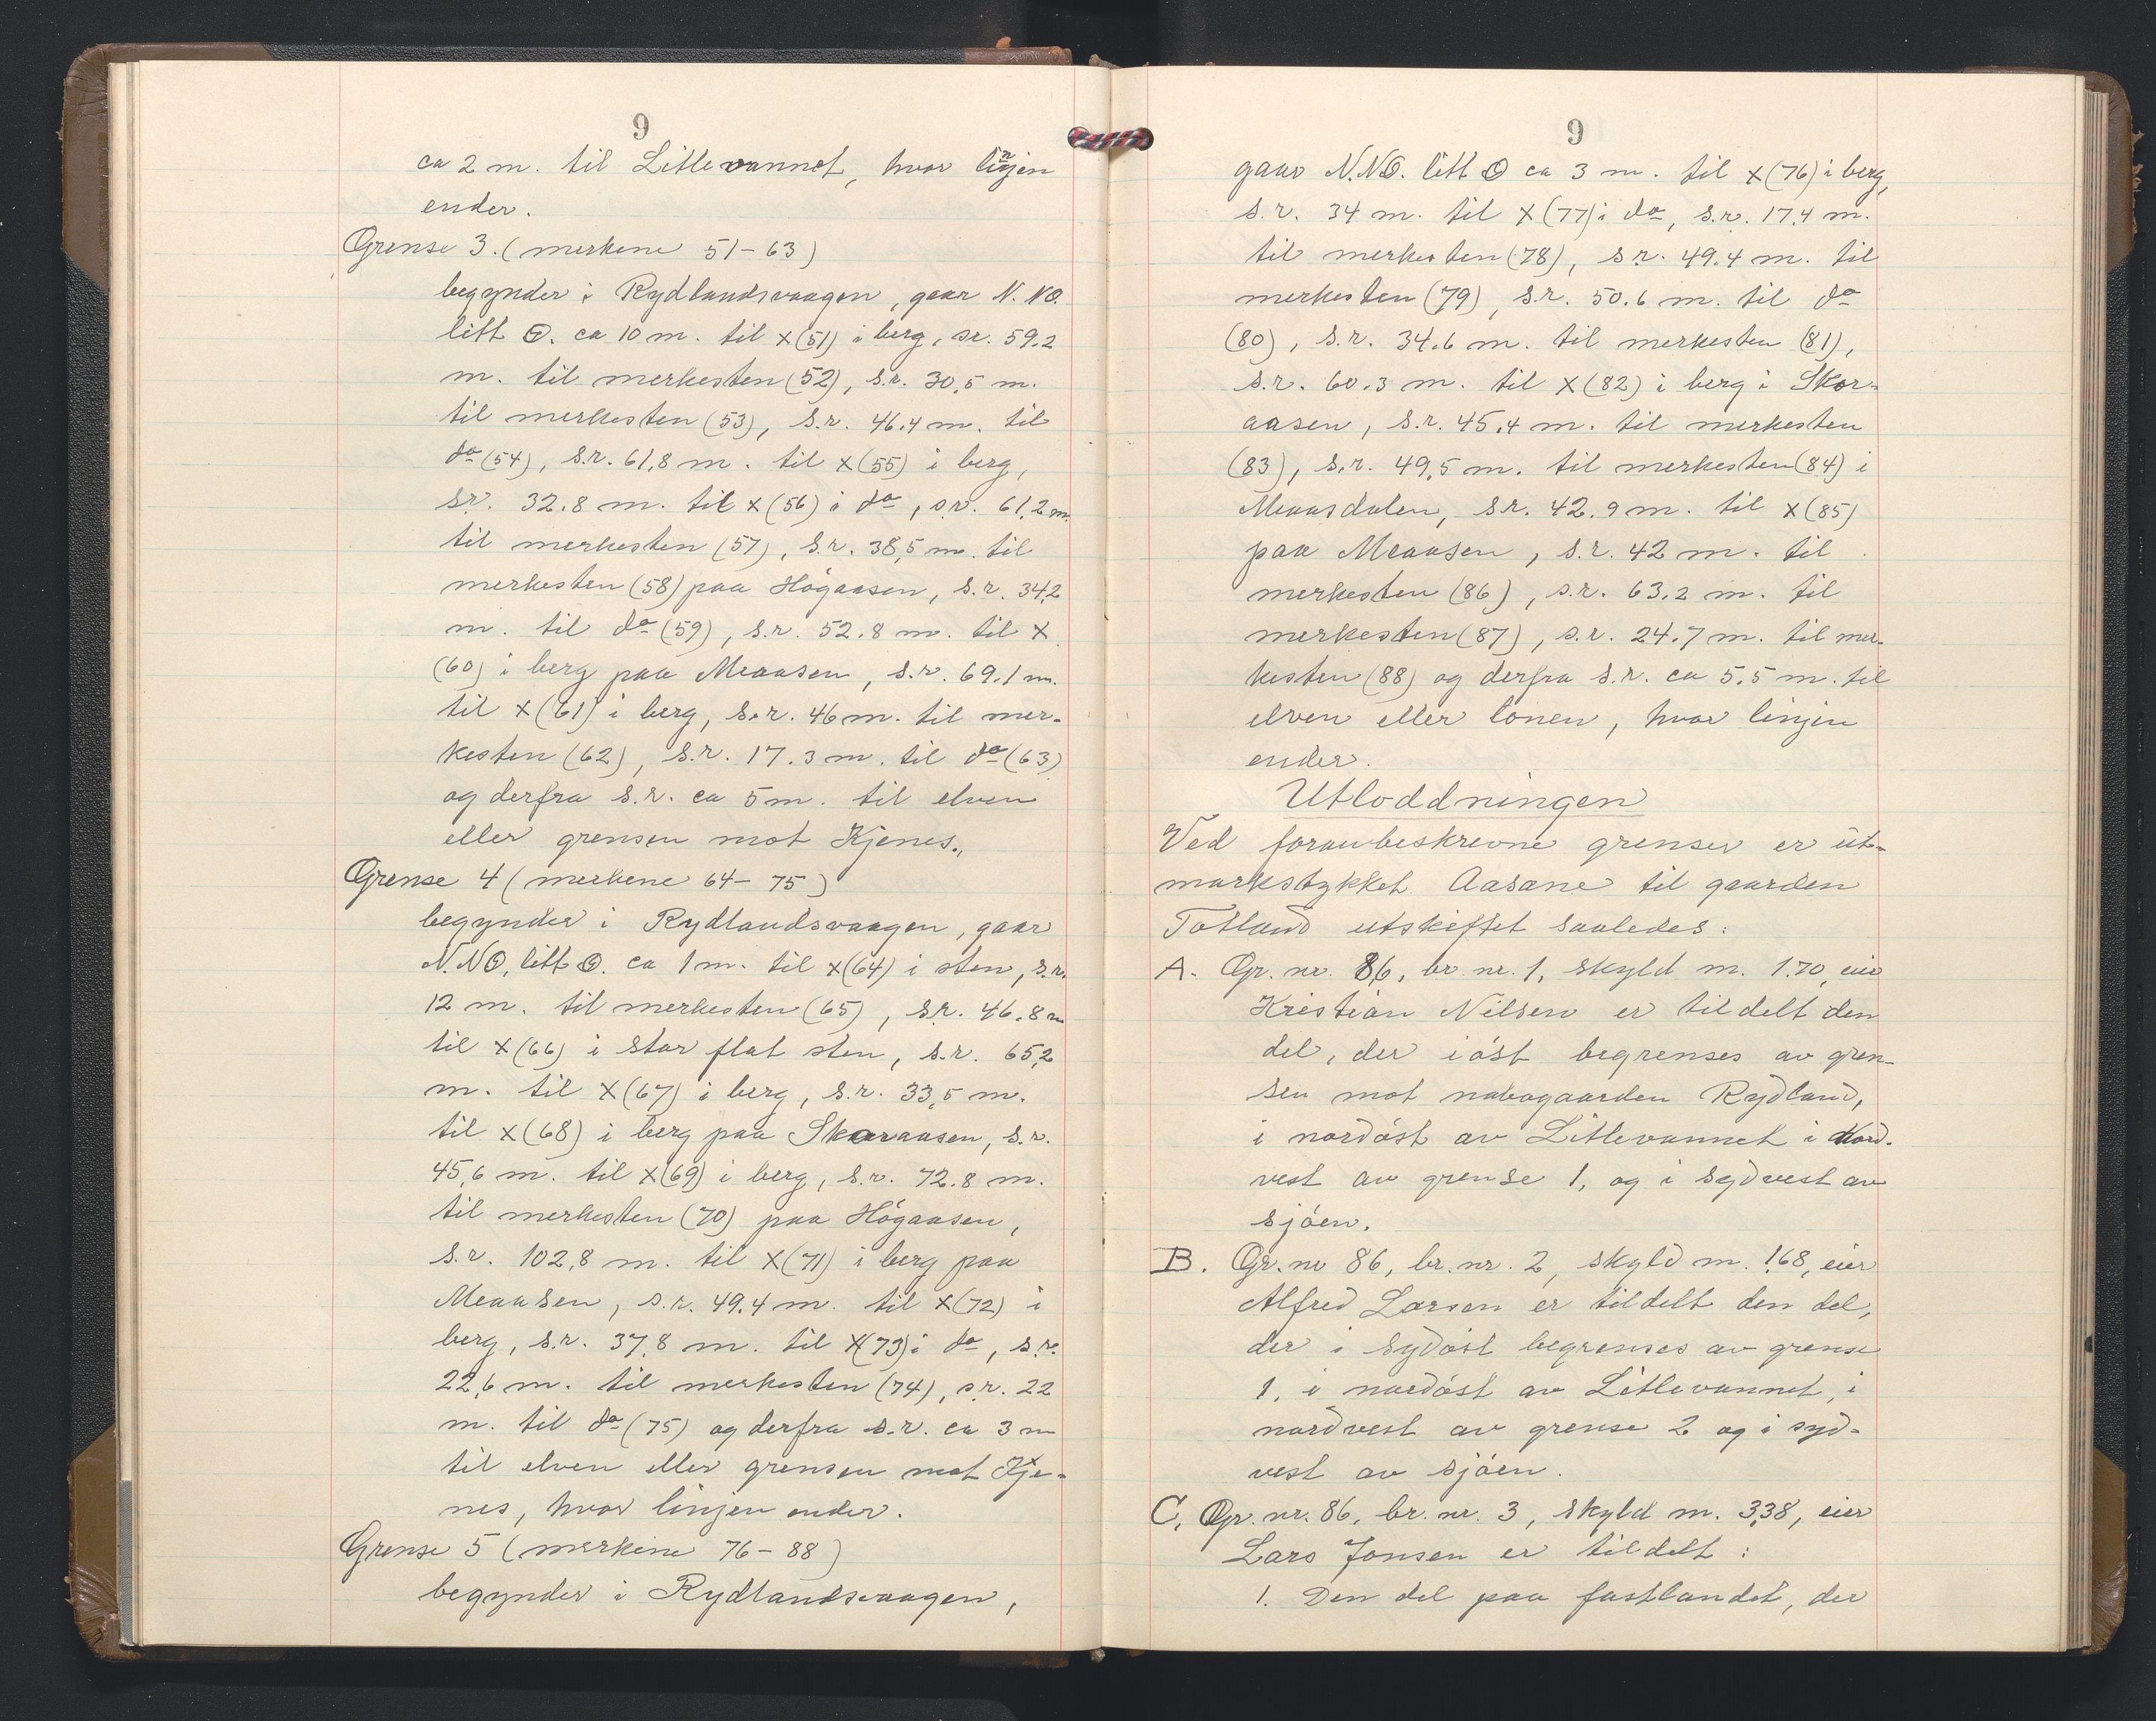 9
ca 2 m. til Litlevannet, hvor linjen
ender.
Grense 3. (merkene 51-63)
begynder i Rydlandsvaagen, gaar N.NO.
litt O. ca 10 m. til x(51) i berg, sr. 59.2
m. til merkesten (52), s.r. 30,5 m.
til merkesten (53), s.r. 46,4 m. til
do (54), s.r. 61,8 m. til x(55) i berg,
sr. 32.8 m. til x(56) i do, s.r. 61,2 m.
til merkesten (57), s.r. 38,5 m. til
merkesten (58) paa Högaasen, s.r. 34,2
m. til do (59), s.r. 52.8 m. til x
(60) i berg paa Meaasen, s.r. 69.1 m.
til x(61) i berg, s.r. 46 m. til mer-
kesten (62), s.r. 17.3 m. til do (63)
og derfra s.r. ca 5 m. til elven
eller grensen mot Kjenes.,
Grense 4 (merkene 64-75)
begynder i Rydlandsvaagen, gaar
N.NO. litt O. ca 1 m. til x(64) i sten, s.r.
12 m. til merkesten (65), s.r. 46.8 m
til x(66) i stor flat sten, s.r. 65,2
m. til x(67) i berg, s.r. 33,5 m.
til x(68) i berg paa Skoraasen, s.r.
45,6 m. til x(69) i berg, s.r. 72.8 m.
til merkesten (70) paa Högaasen,
s.r. 102,8 m. til x(71) i berg paa
Meaasen, s.r. 49.4 m. til x(72) i
berg, s.r. 37,8 m. til x(73) i do, s.r.
22,6 m. til merkesten (74), s.r. 22
m. til do (75) og derfra s.r. ca 3 m
til elven eller grensen mot Kje-
nes, hvor linjen ender.
Grense 5 (merkene 76-88)
begynder i Rydlandsvaagen,
9
gaar N.NO. litt O ca 3 m. til x(76) i berg,
s.r. 34 m. til x(77) i do, s.r. 17,4 m.
til merkesten (78), s.r. 49.4 m. til
merkesten (79), s.r. 50.6 m. til do
(80), s.r. 34.6 m. til merkesten (81),
s.r. 60.3 m. til x(82) i berg i Skor-
aasen, s.r. 45,4 m. til merkesten
(83), s.r. 49,5 m. til merkesten (84) i
Meaasdalen, s.r. 42.9 m. til x(85)
paa Meaasen, s.r. 42 m. til
merkesten (86), s.r. 63.2 m. til
merkesten (87), s.r. 24.7 m. til mer-
kesten (88) og derfra s.r. ca 5.5 m. til
elven eller lonen, hvor linjen
ender.
Utloddningen
Ved foranbeskrevne grenser er ut-
markstykket Aasane til gaarden
Totland utskiftet saaledes:
A. Gr. nr. 86, br. nr. 1, skyld m. 1.70, eier
Kristian Nilsen er tildelt den
del, der i öst begrenses av gren-
sen mot nabogaarden Rydland,
i nordöst av Litlevannet i Nord-
vest av grense 1, og i sydvest av
sjöen.
B. Gr. nr 86, br. nr. 2, skyld m. 1.68, eier
Alfred Larsen er tildelt den del,
der i sydöst begrenses av grense
1, i nordöst av Litlevannet, i
nordvest av grense 2 og i syd-
vest av sjöen.
C. Gr. nr. 86, br. nr. 3, skyld m. 3,38, eier
Lars Jonsen er tildelt:
1. Den del paa fastlandet, der